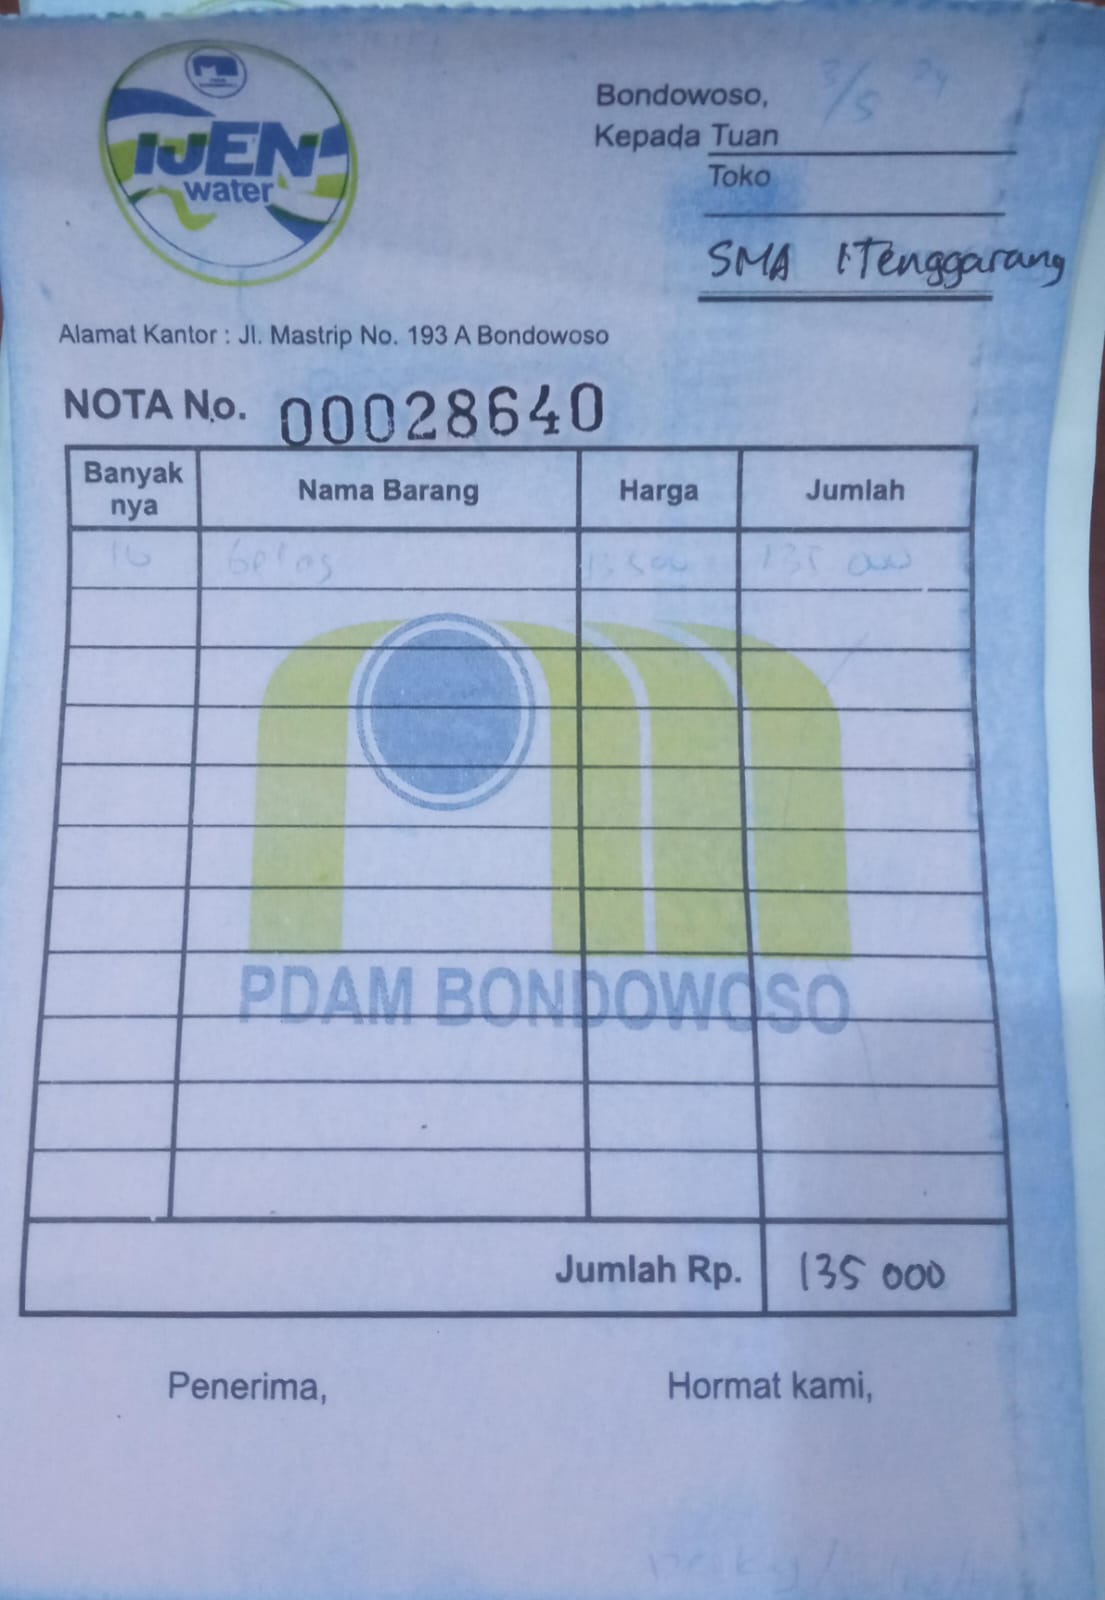 IJEN
water
Bondowoso, 3/5 24
Kepada Tuan
Toko
SMA 1 Tenggarang
Alamat Kantor : Jl. Mastrip No. 193 A Bondowoso
NOTA No. 00028640
Banyak nya Nama Barang Harga Jumlah
10 gelas 13 500 135 000
PDAM BONDOWOSO
Jumlah Rp. 135 000
Penerima, Hormat kami,